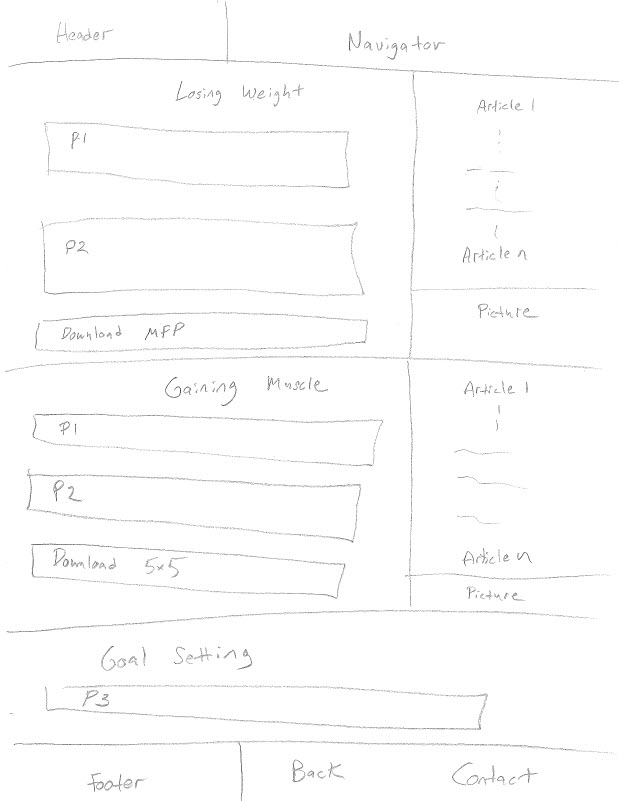 Header
Navigator
Losing Weight
P1
P2
Download MFP
Article 1
Article n
Picture
Gaining Muscle
P1
P2
Download 5x5
Article 1
Article n
Picture
Goal Setting
P3
Footer
Back
Contact